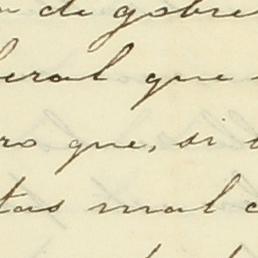 de gobre
beral que
ro que, si
tas mal c